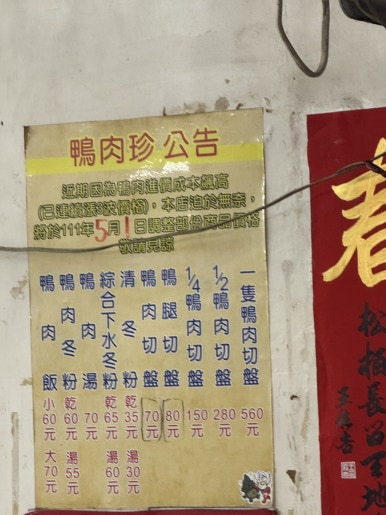 鴨肉珍 公告
近期因為鴨肉進價成本飆高
(已連續漲3波價格)，本店迫於無奈，
將於111年5月1日調整部份商品價格
敬請見諒
一隻鴨肉切盤 560元
1/2鴨肉切盤 280元
1/4鴨肉切盤 150元
鴨腿切盤 80元
鴨肉切盤 70元
清冬粉 乾35元 湯30元
綜合下水冬粉 乾65元 湯60元
鴨肉湯 70元
鴨肉冬粉 乾60元 湯55元
鴨肉飯 小60元 大70元
春
松柏長青